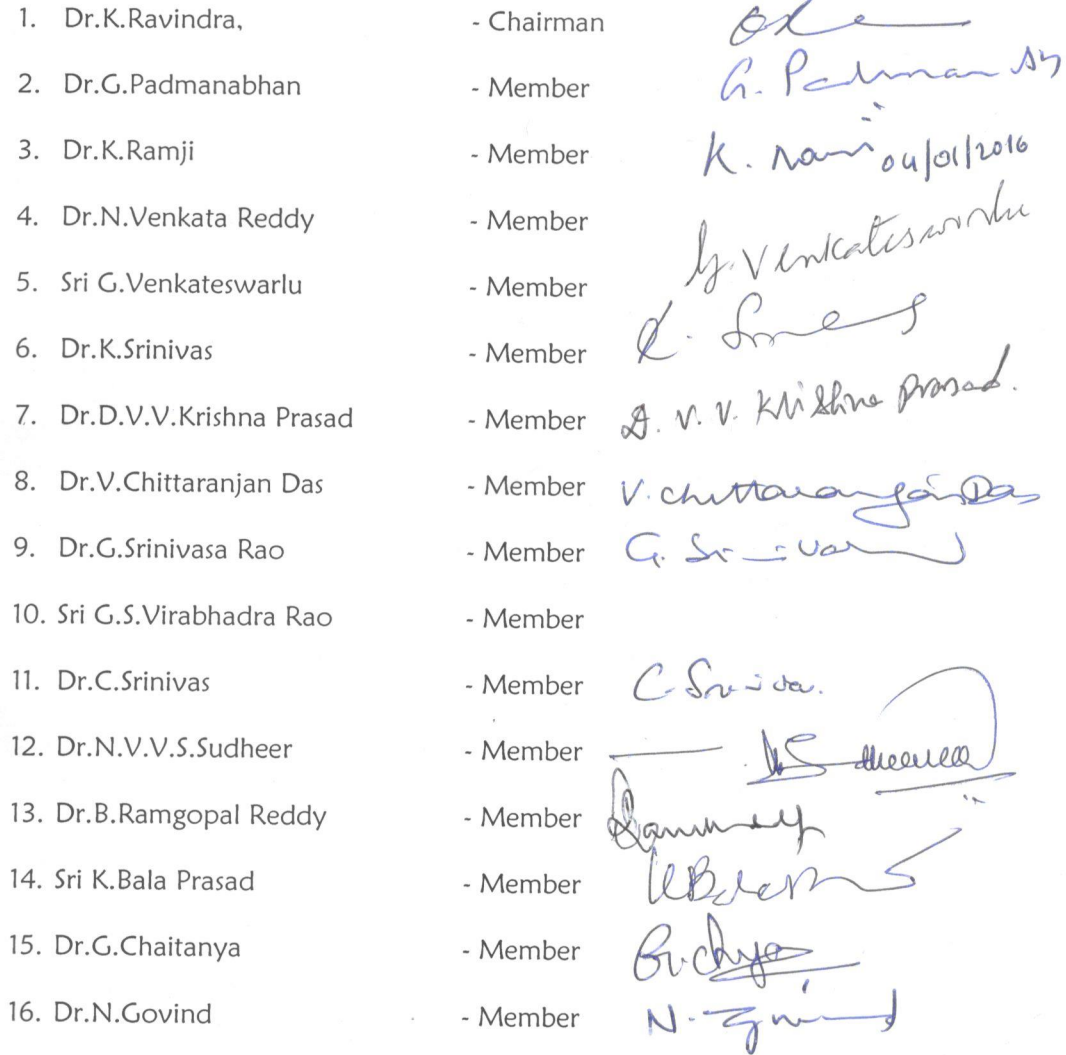 1. Dr.K.Ravindra, - Chairman
2. Dr.G.Padmanabhan - Member G. Padman
3. Dr.K.Ramji - Member K. Ramji 04/01/2016
4. Dr.N.Venkata Reddy - Member
5. Sri G.Venkateswarlu - Member G. Venkateswarlu
6. Dr.K.Srinivas - Member K.
7. Dr.D.V.V.Krishna Prasad - Member D. V. V. Krishna Prasad.
8. Dr.V.Chittaranjan Das - Member V. Chittaranjan Das
9. Dr.G.Srinivasa Rao - Member G. Srinivas
10. Sri G.S.Virabhadra Rao - Member
11. Dr.C.Srinivas - Member C. Sriniva.
12. Dr.N.V.V.S.Sudheer - Member
13. Dr.B.Ramgopal Reddy - Member
14. Sri K.Bala Prasad - Member
15. Dr.G.Chaitanya - Member
16. Dr.N.Govind - Member N. Govind